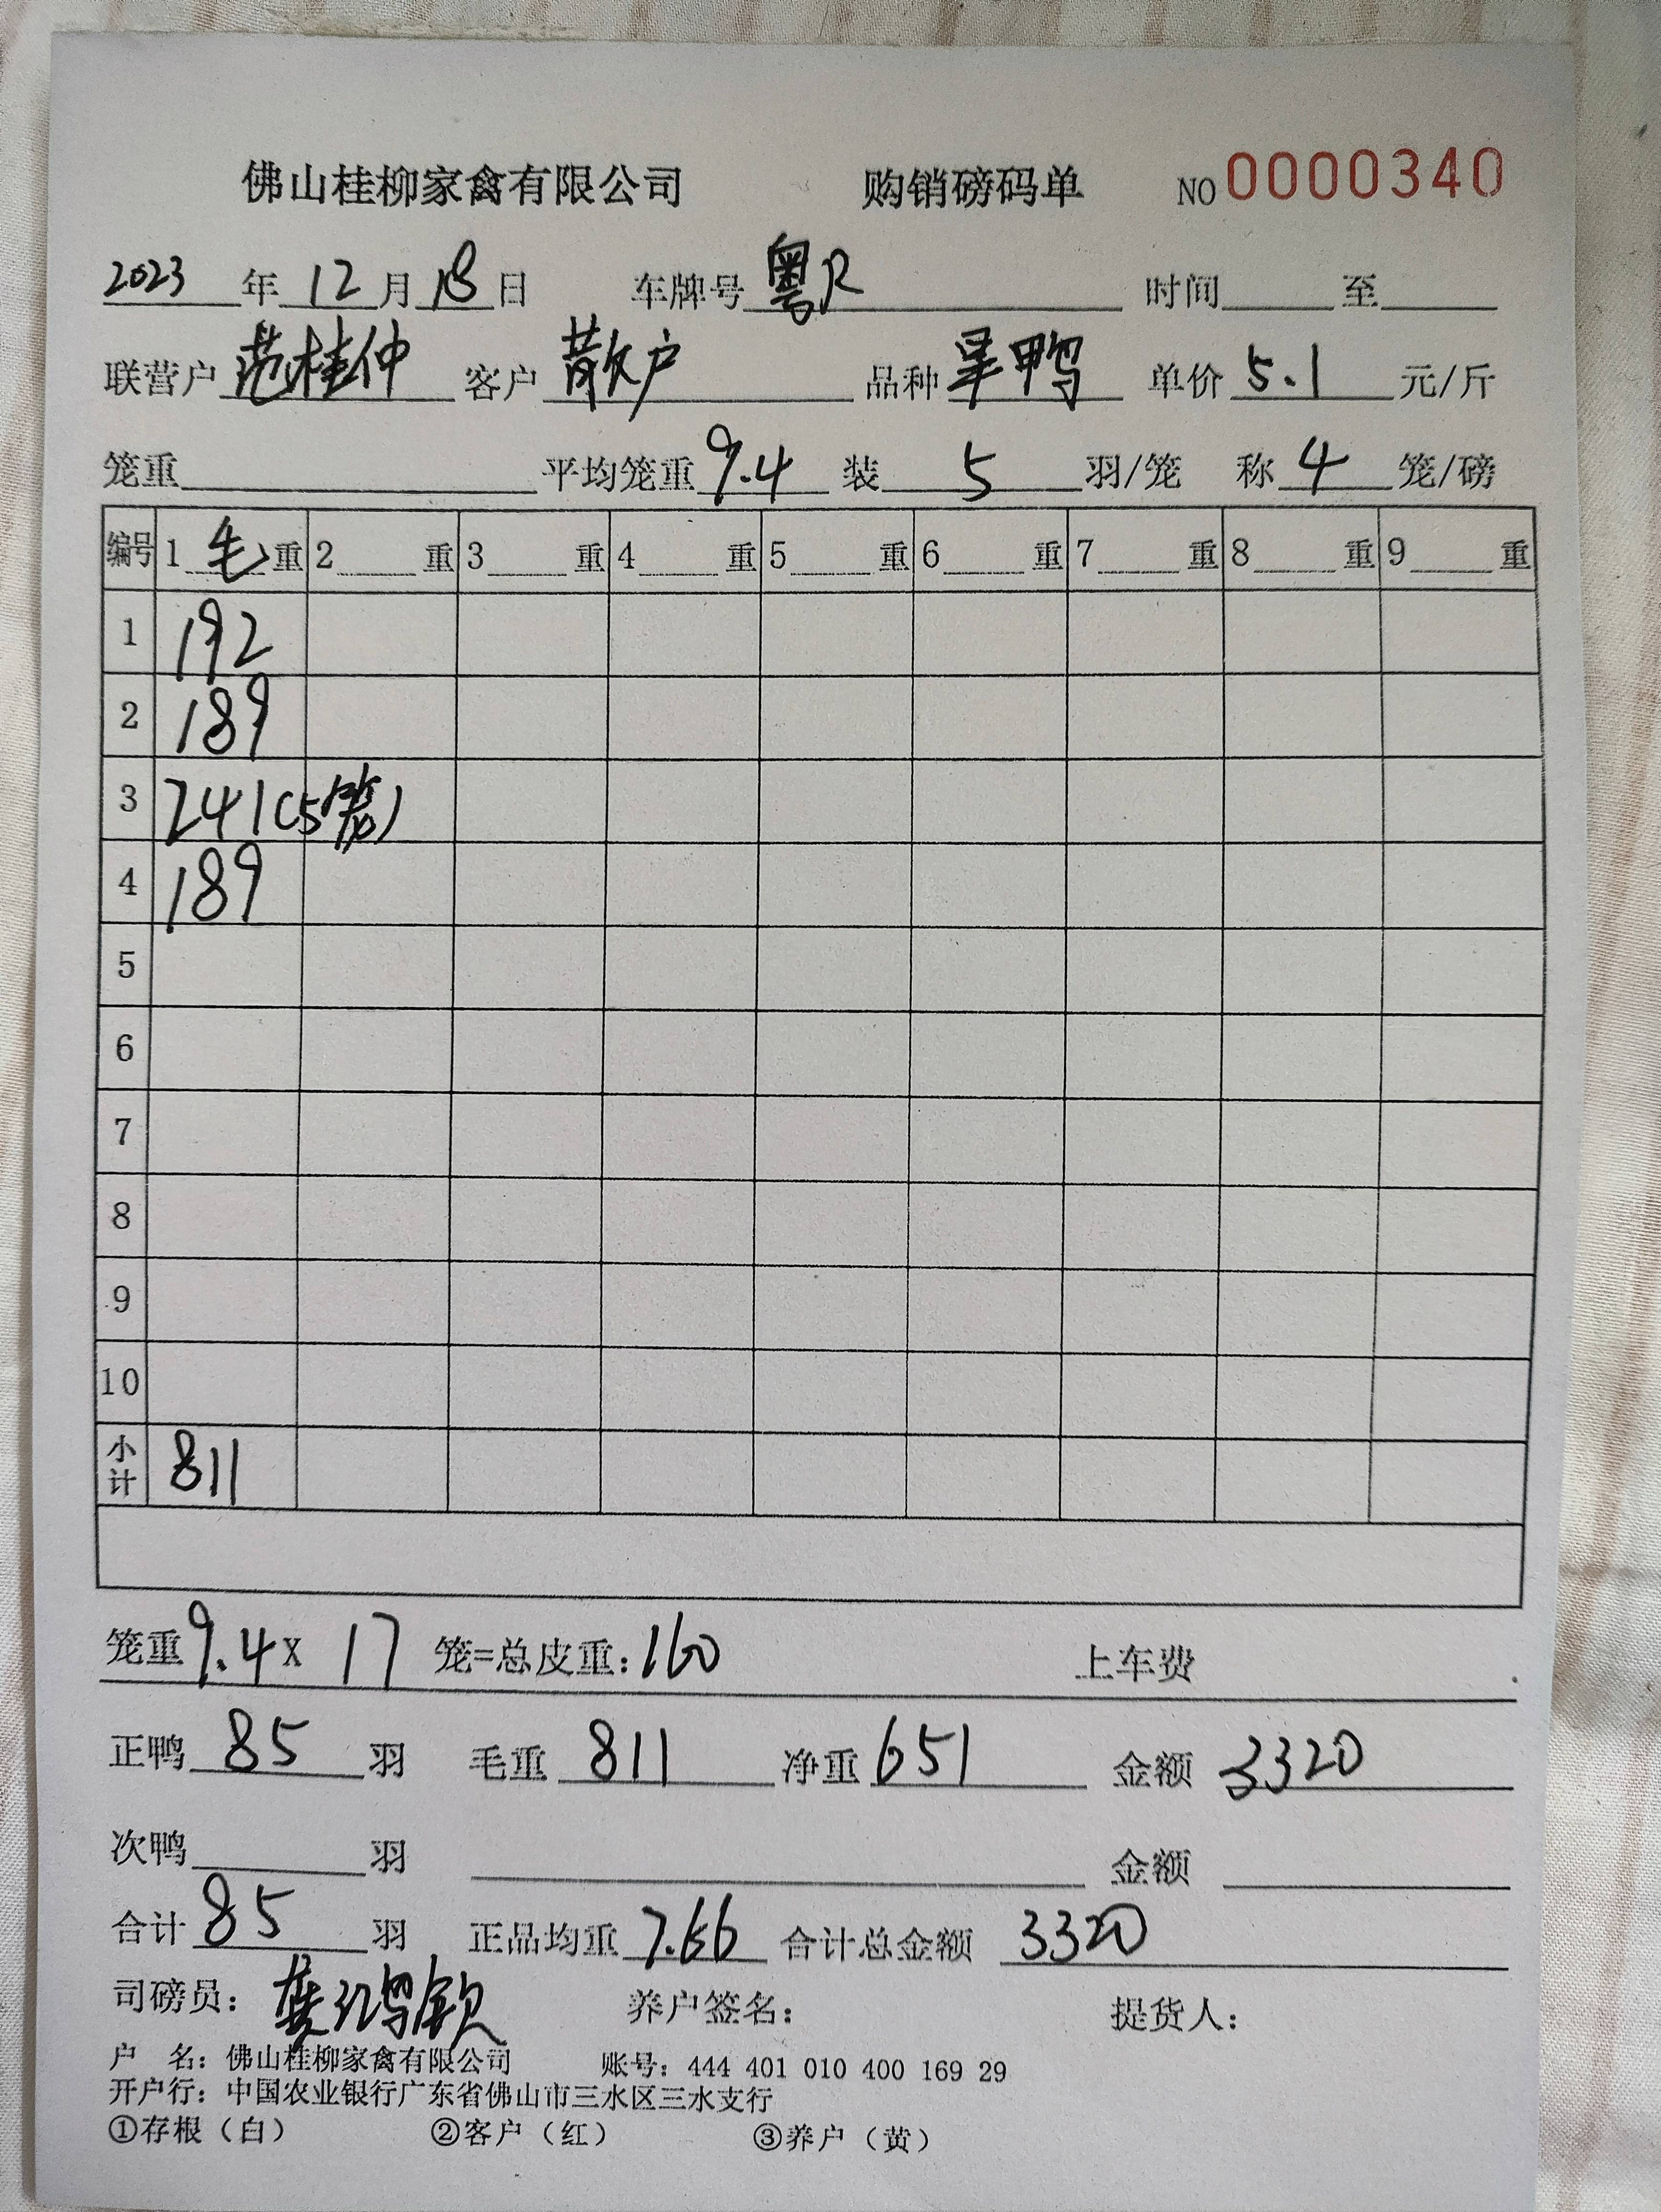 佛山桂柳家禽有限公司 购销磅码单 NO 0000340
2023 年 12 月 18 日 车牌号 粤R 时间 至
联营户 范桂仲 客户 散户 品种 单价 5.1 元/斤
笼重 平均笼重 9.4 装 5 羽/笼 称 4 笼/磅
编号 1 毛 重 2 重 3 重 4 重 5 重 6 重 7 重 8 重 9 重
1 192
2 189
3 241(5笼)
4 189
5
6
7
8
9
10
小计 811
笼重 9.4 X 17 笼=总皮重: 160 上车费
正鸭 85 羽 毛重 811 净重 651 金额 3320
次鸭 羽 金额
合计 85 羽 正品均重 7.66 合计总金额 3320
司磅员: 养户签名: 提货人:
户 名: 佛山桂柳家禽有限公司 账号: 444 401 010 400 169 29
开户行: 中国农业银行广东省佛山市三水区三水支行
①存根（白） ②客户（红） ③养户（黄）